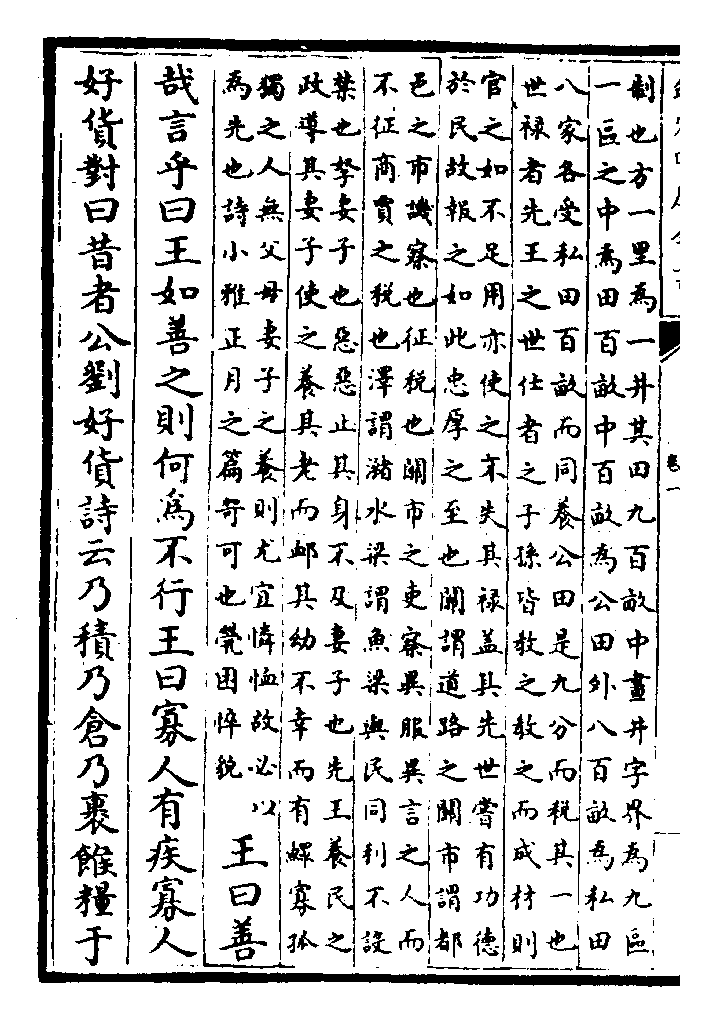 卷一
制也方一里為一井其田九百畝中畫井字界為九區
一區之中為田百畝中百畝為公田外八百畝為私田
八家各受私田百畝而同養公田是九分而稅其一也
世禄者先王之世仕者之子孫皆教之教之而成材則
官之如不足用亦使之不失其禄盖其先世嘗有功德
於民故報之如此忠厚之至也關謂道路之關市謂都
邑之市譏察也征稅也關市之吏察異服異言之人而
不征商賈之稅也澤謂瀦水梁謂魚梁與民同利不設
禁也孥妻子也惡惡止其身不及妻子也先王養民之
政導其妻子使之養其老而䘏其幼不幸而有鰥寡孤
獨之人無父母妻子之養則尤宜憐恤故必以
為先也詩小雅正月之篇哿可也煢困悴貌
王曰善
哉言乎曰王如善之則何為不行王曰寡人有疾寡人
好貨對曰昔者公劉好貨詩云乃積乃倉乃裹餱糧于